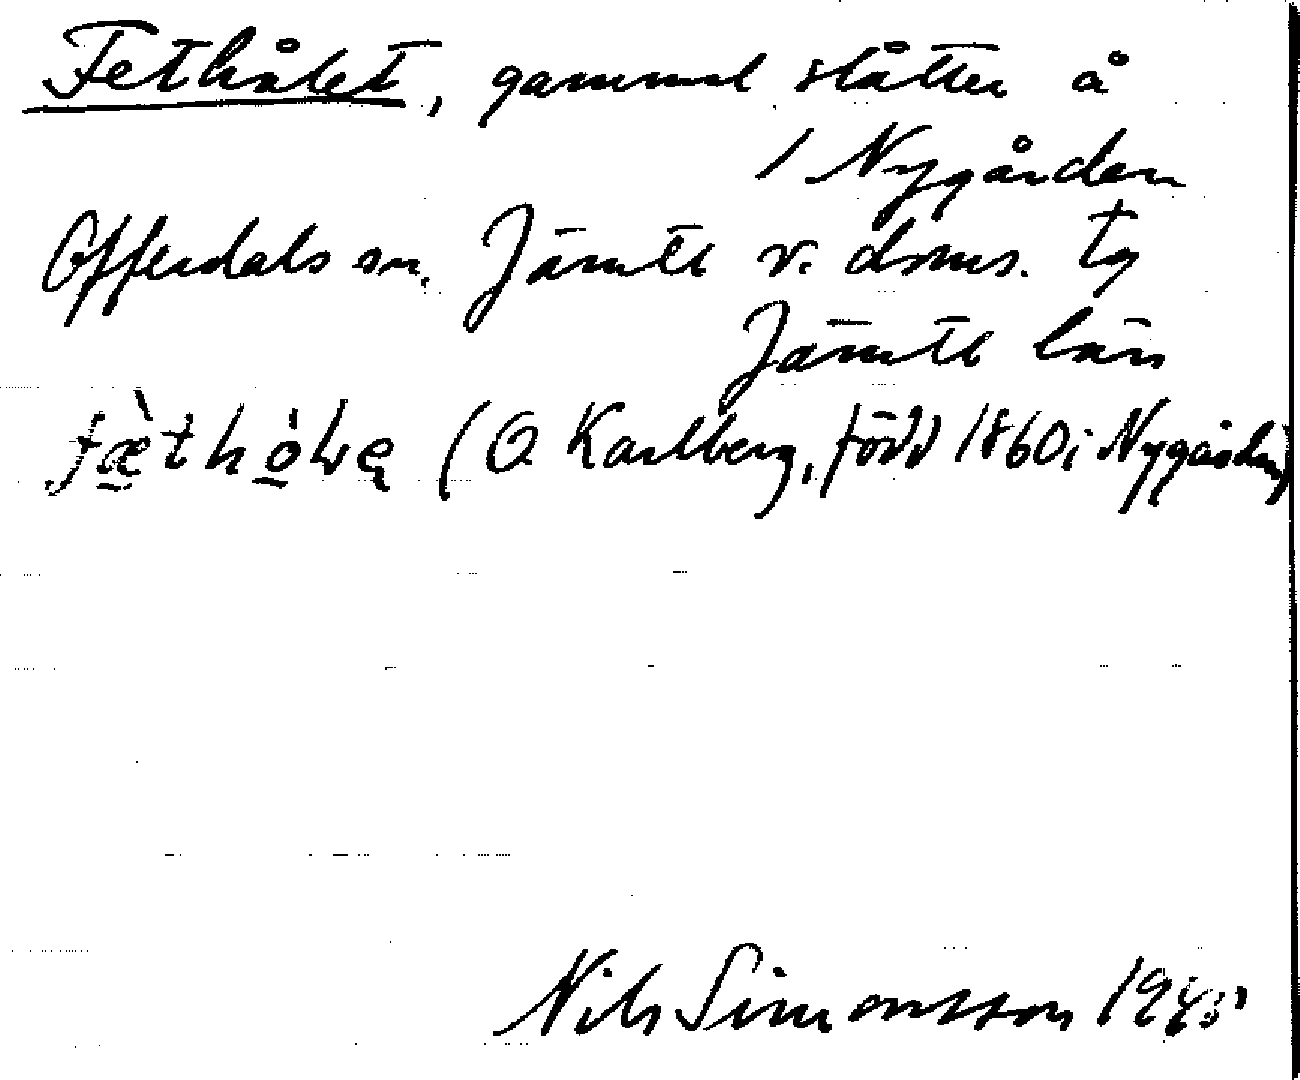 Fethålet, gammal slåtter å
1 Nygården
Offerdals sn. Jämtl v. doms. tg
Jämtl län
fæ̀thó̱læ (O Karlberg, född 1860 i Nygården)
Nils Simonsson